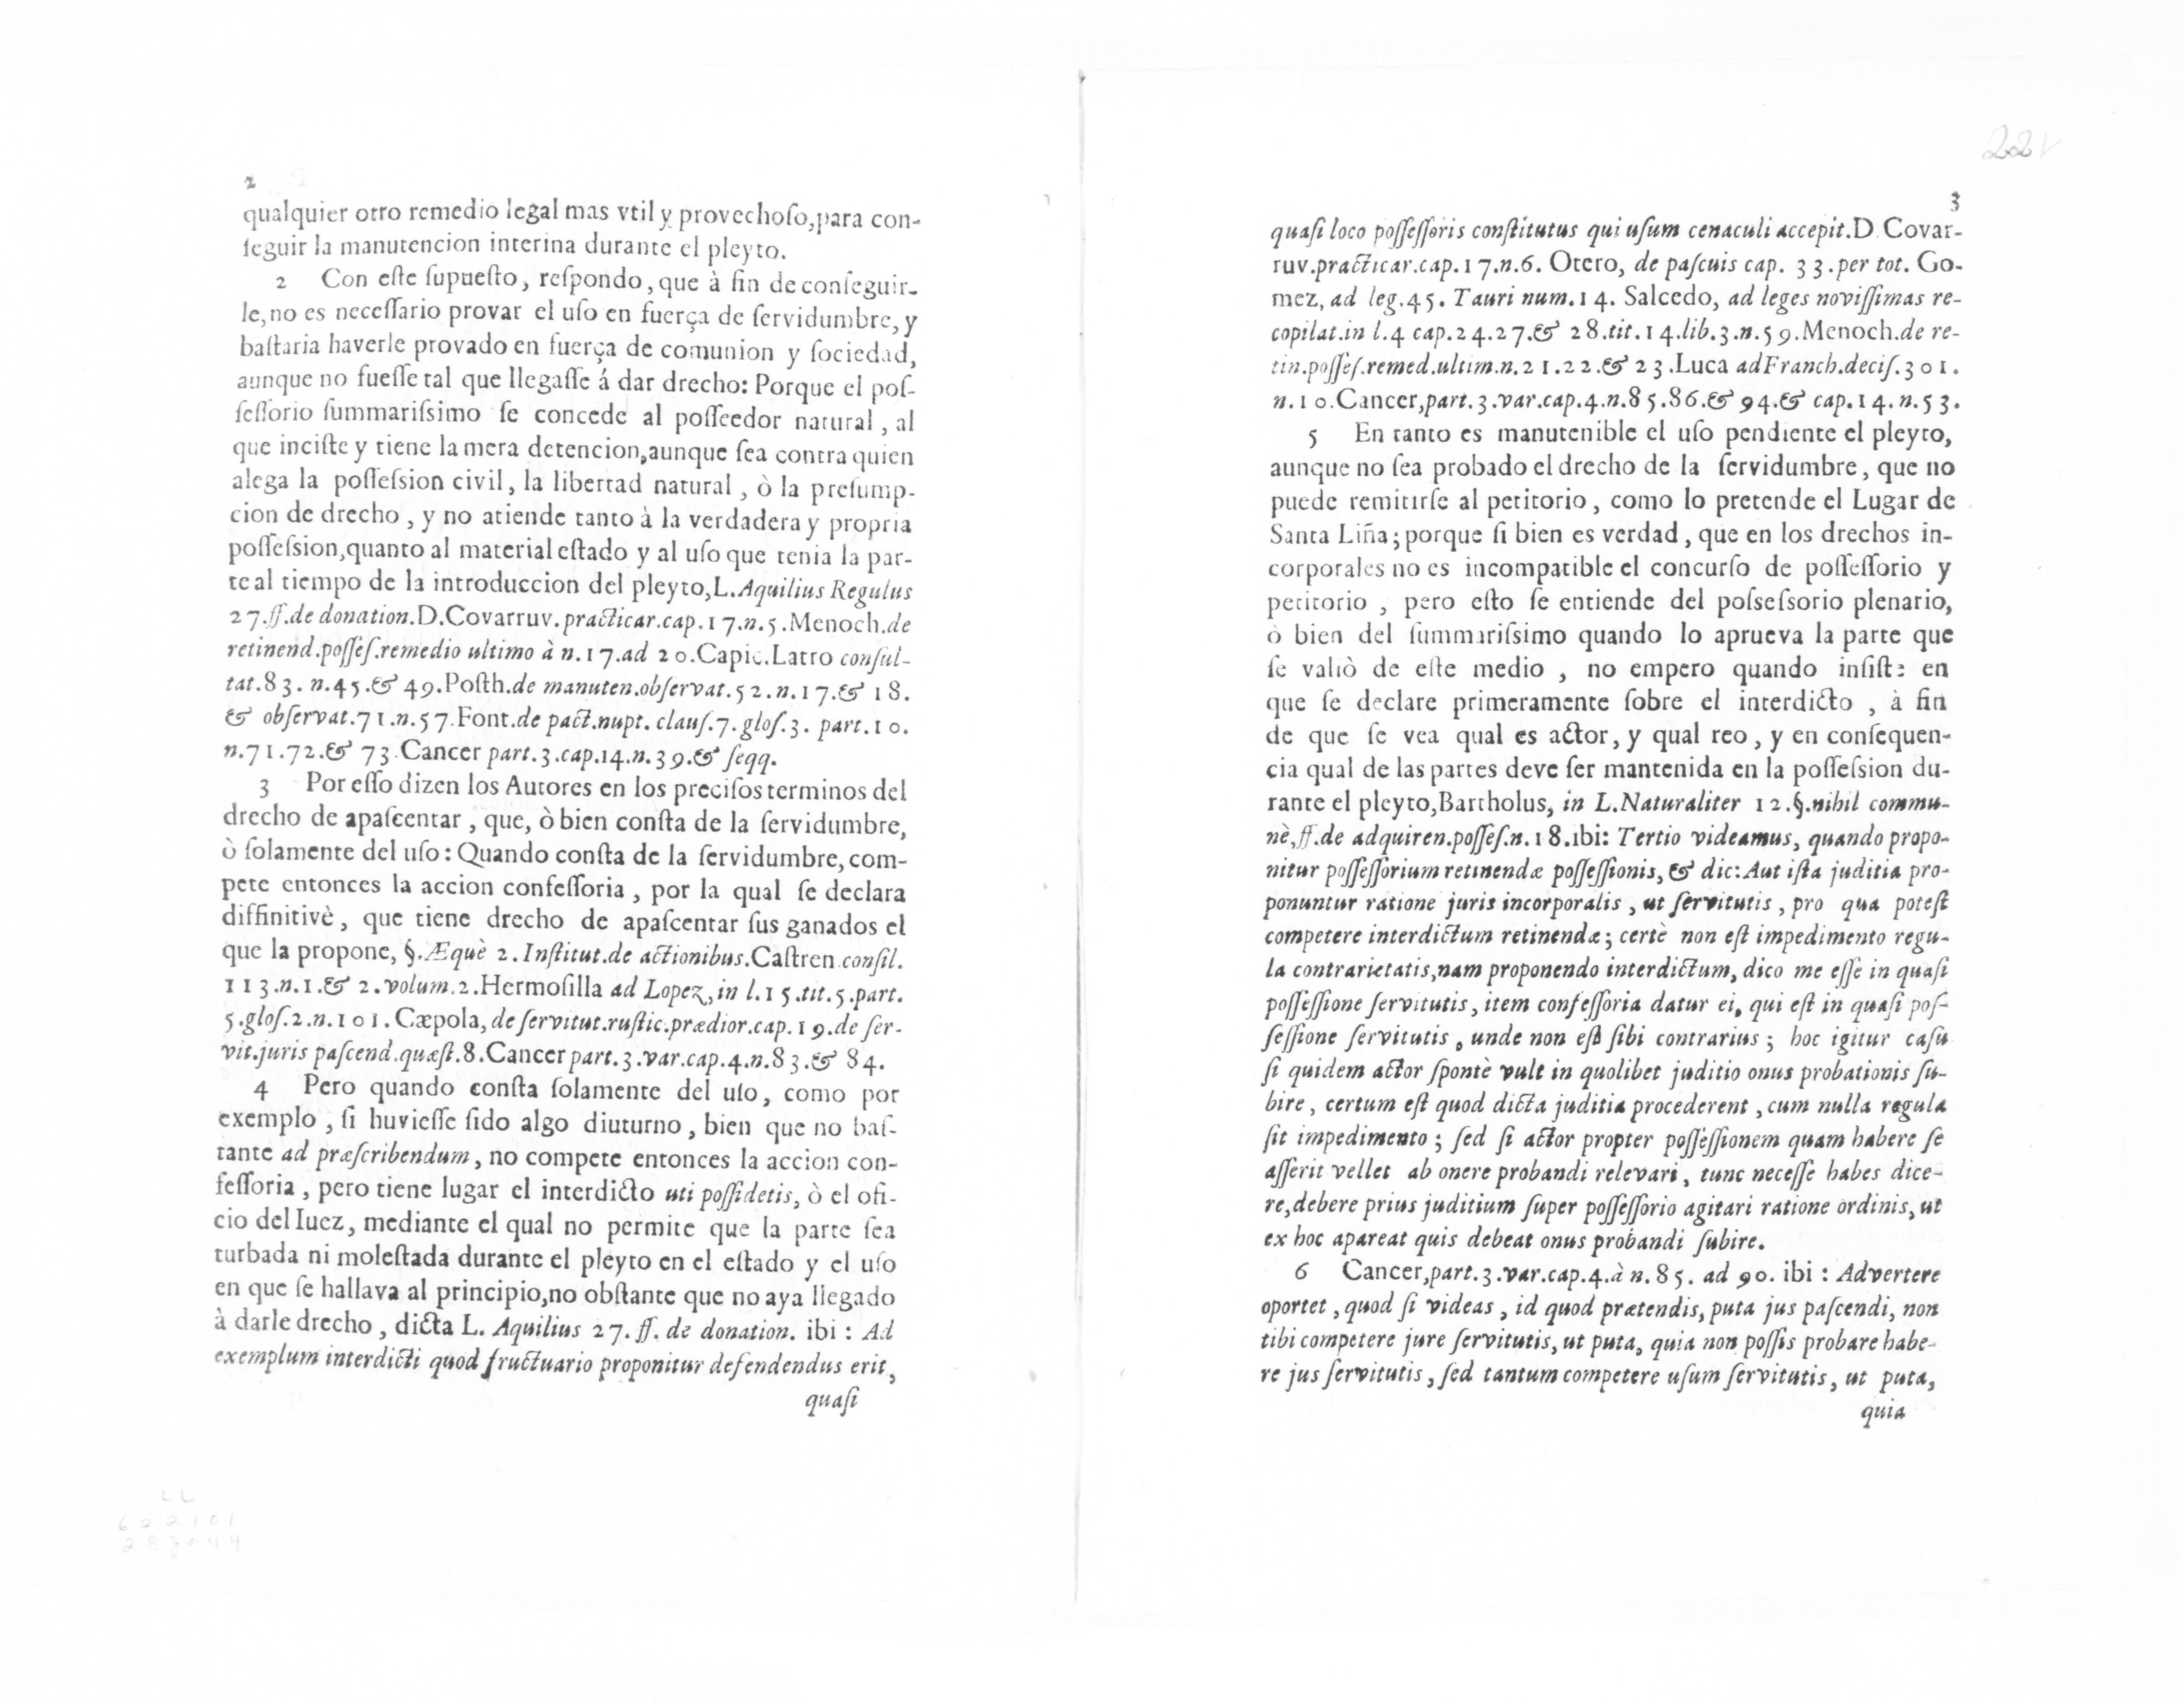 2
qualquier otro remedio legal mas vtil y provechoſo,para con-
ſeguir la manutencion interina durante el pleyto.
2 Con eſte ſupueſto, reſpondo, que à fin de conſeguir-
le,no es neceſſario provar el uſo en fuerça de ſervidumbre, y
baſtaria haverle provado en fuerça de comunion y ſociedad,
aunque no fueſſe tal que llegaſſe á dar drecho: Porque el poſ-
ſeſſorio ſummariſsimo ſe concede al poſſeedor natural, al
que inciſte y tiene la mera detencion,aunque ſea contra quien
alega la poſſeſsion civil, la libertad natural, ò la preſump-
cion de drecho, y no atiende tanto à la verdadera y propria
poſſeſsion,quanto al material eſtado y al uſo que tenia la par-
te al tiempo de la introduccion del pleyto,L.Aquilius Regulus
27.ff.de donation.D.Covarruv.practicar.cap.17.n.5.Menoch.de
retinend.poſſeſ.remedio ultimo à n.17.ad 20.Capic.Latro conſul-
tat.83. n.45.& 49.Poſth.de manuten.obſervat.52.n.17.& 18.
& obſervat.71.n.57.Font.de pact.nupt. clauſ.7. gloſ.3. part.10.
n.71.72.& 73.Cancer part.3.cap.14.n.39.& ſeqq.
3 Por eſſo dizen los Autores en los preciſos terminos del
drecho de apaſcentar, que, ò bien conſta de la ſervidumbre,
ò ſolamente del uſo: Quando conſta de la ſervidumbre, com-
pete entonces la accion confeſſoria, por la qual ſe declara
diffinitivè, que tiene drecho de apaſcentar ſus ganados el
que la propone, §.Æquè 2.Inſtitut.de actionibus.Caſtren.conſil.
113.n.1.& 2.volum.2.Hermoſilla ad Lopez,in l.15.tit.5.part.
5.gloſ.2.n.101.Cæpola, de ſervitut.ruſtic.prædior.cap.19.de ſer-
vit.juris paſcend.quæſt.8.Cancer part.3.var.cap.4.n.83.& 84.
4 Pero quando conſta ſolamente del uſo, como por
exemplo, ſi huvieſſe ſido algo diuturno, bien que no baſ-
tante ad præſcribendum, no compete entonces la accion con-
feſſoria, pero tiene lugar el interdicto uti poſſidetis, ò el ofi-
cio del Iuez, mediante el qual no permite que la parte ſea
turbada ni moleſtada durante el pleyto en el eſtado y el uſo
en que ſe hallava al principio,no obſtante que no aya llegado
à darle drecho, dicta L. Aquilius 27. ff. de donation. ibi: Ad
exemplum interdicti quod fructuario proponitur defendendus erit,
quaſi
221
3
quaſi loco poſſeſſoris conſtitutus qui uſum cenaculi accepit.D.Covar-
ruv.practicar.cap.17.n.6. Otero, de paſcuis cap. 33.per tot. Go-
mez, ad leg.45. Tauri num.14. Salcedo, ad leges noviſſimas re-
copilat.in l.4 cap.24.27.& 28.tit.14.lib.3.n.59.Menoch.de re-
tin.poſſeſ.remed.ultim.n.21.22.& 23.Luca ad Franch.deciſ.301.
n.10.Cancer,part.3.var.cap.4.n.85.86.& 94.& cap.14.n.53.
5 En tanto es manutenible el uſo pendiente el pleyto,
aunque no ſea probado el drecho de la ſervidumbre, que no
puede remitirſe al petitorio, como lo pretende el Lugar de
Santa Liña; porque ſi bien es verdad, que en los drechos in-
corporales no es incompatible el concurſo de poſſeſſorio y
petitorio, pero eſto ſe entiende del poſseſsorio plenario,
ò bien del ſummariſsimo quando lo aprueva la parte que
ſe valiò de eſte medio, no empero quando inſiſte en
que ſe declare primeramente ſobre el interdicto, à fin
de que ſe vea qual es actor, y qual reo, y en conſequen-
cia qual de las partes deve ſer mantenida en la poſſeſsion du-
rante el pleyto,Bartholus, in L.Naturaliter 12.§.nihil commu-
nè,ff.de adquiren.poſſeſ.n.18.ibi: Tertio videamus, quando propo-
nitur poſſeſſorium retinendæ poſſeſſionis, & dic: Aut iſta juditia pro-
ponuntur ratione juris incorporalis, ut ſervitutis, pro qua poteſt
competere interdictum retinendæ; certè non eſt impedimento regu-
la contrarietatis,nam proponendo interdictum, dico me eſſe in quaſi
poſſeſſione ſervitutis, item confeſſoria datur ei, qui eſt in quaſi poſ-
ſeſſione ſervitutis, unde non eſt ſibi contrarius; hoc igitur caſu
ſi quidem actor ſpontè vult in quolibet juditio onus probationis ſu-
bire, certum eſt quod dicta juditia procederent, cum nulla regula
ſit impedimento; ſed ſi actor propter poſſeſſionem quam habere ſe
aſſerit vellet ab onere probandi relevari, tunc neceſſe habes dice-
re,debere prius juditium ſuper poſſeſſorio agitari ratione ordinis, ut
ex hoc apareat quis debeat onus probandi ſubire.
6 Cancer,part.3.var.cap.4.à n.85. ad 90. ibi: Advertere
oportet, quod ſi videas, id quod prætendis, puta jus paſcendi, non
tibi competere jure ſervitutis, ut puta, quia non poſſis probare habe-
re jus ſervitutis, ſed tantum competere uſum ſervitutis, ut puta,
quia